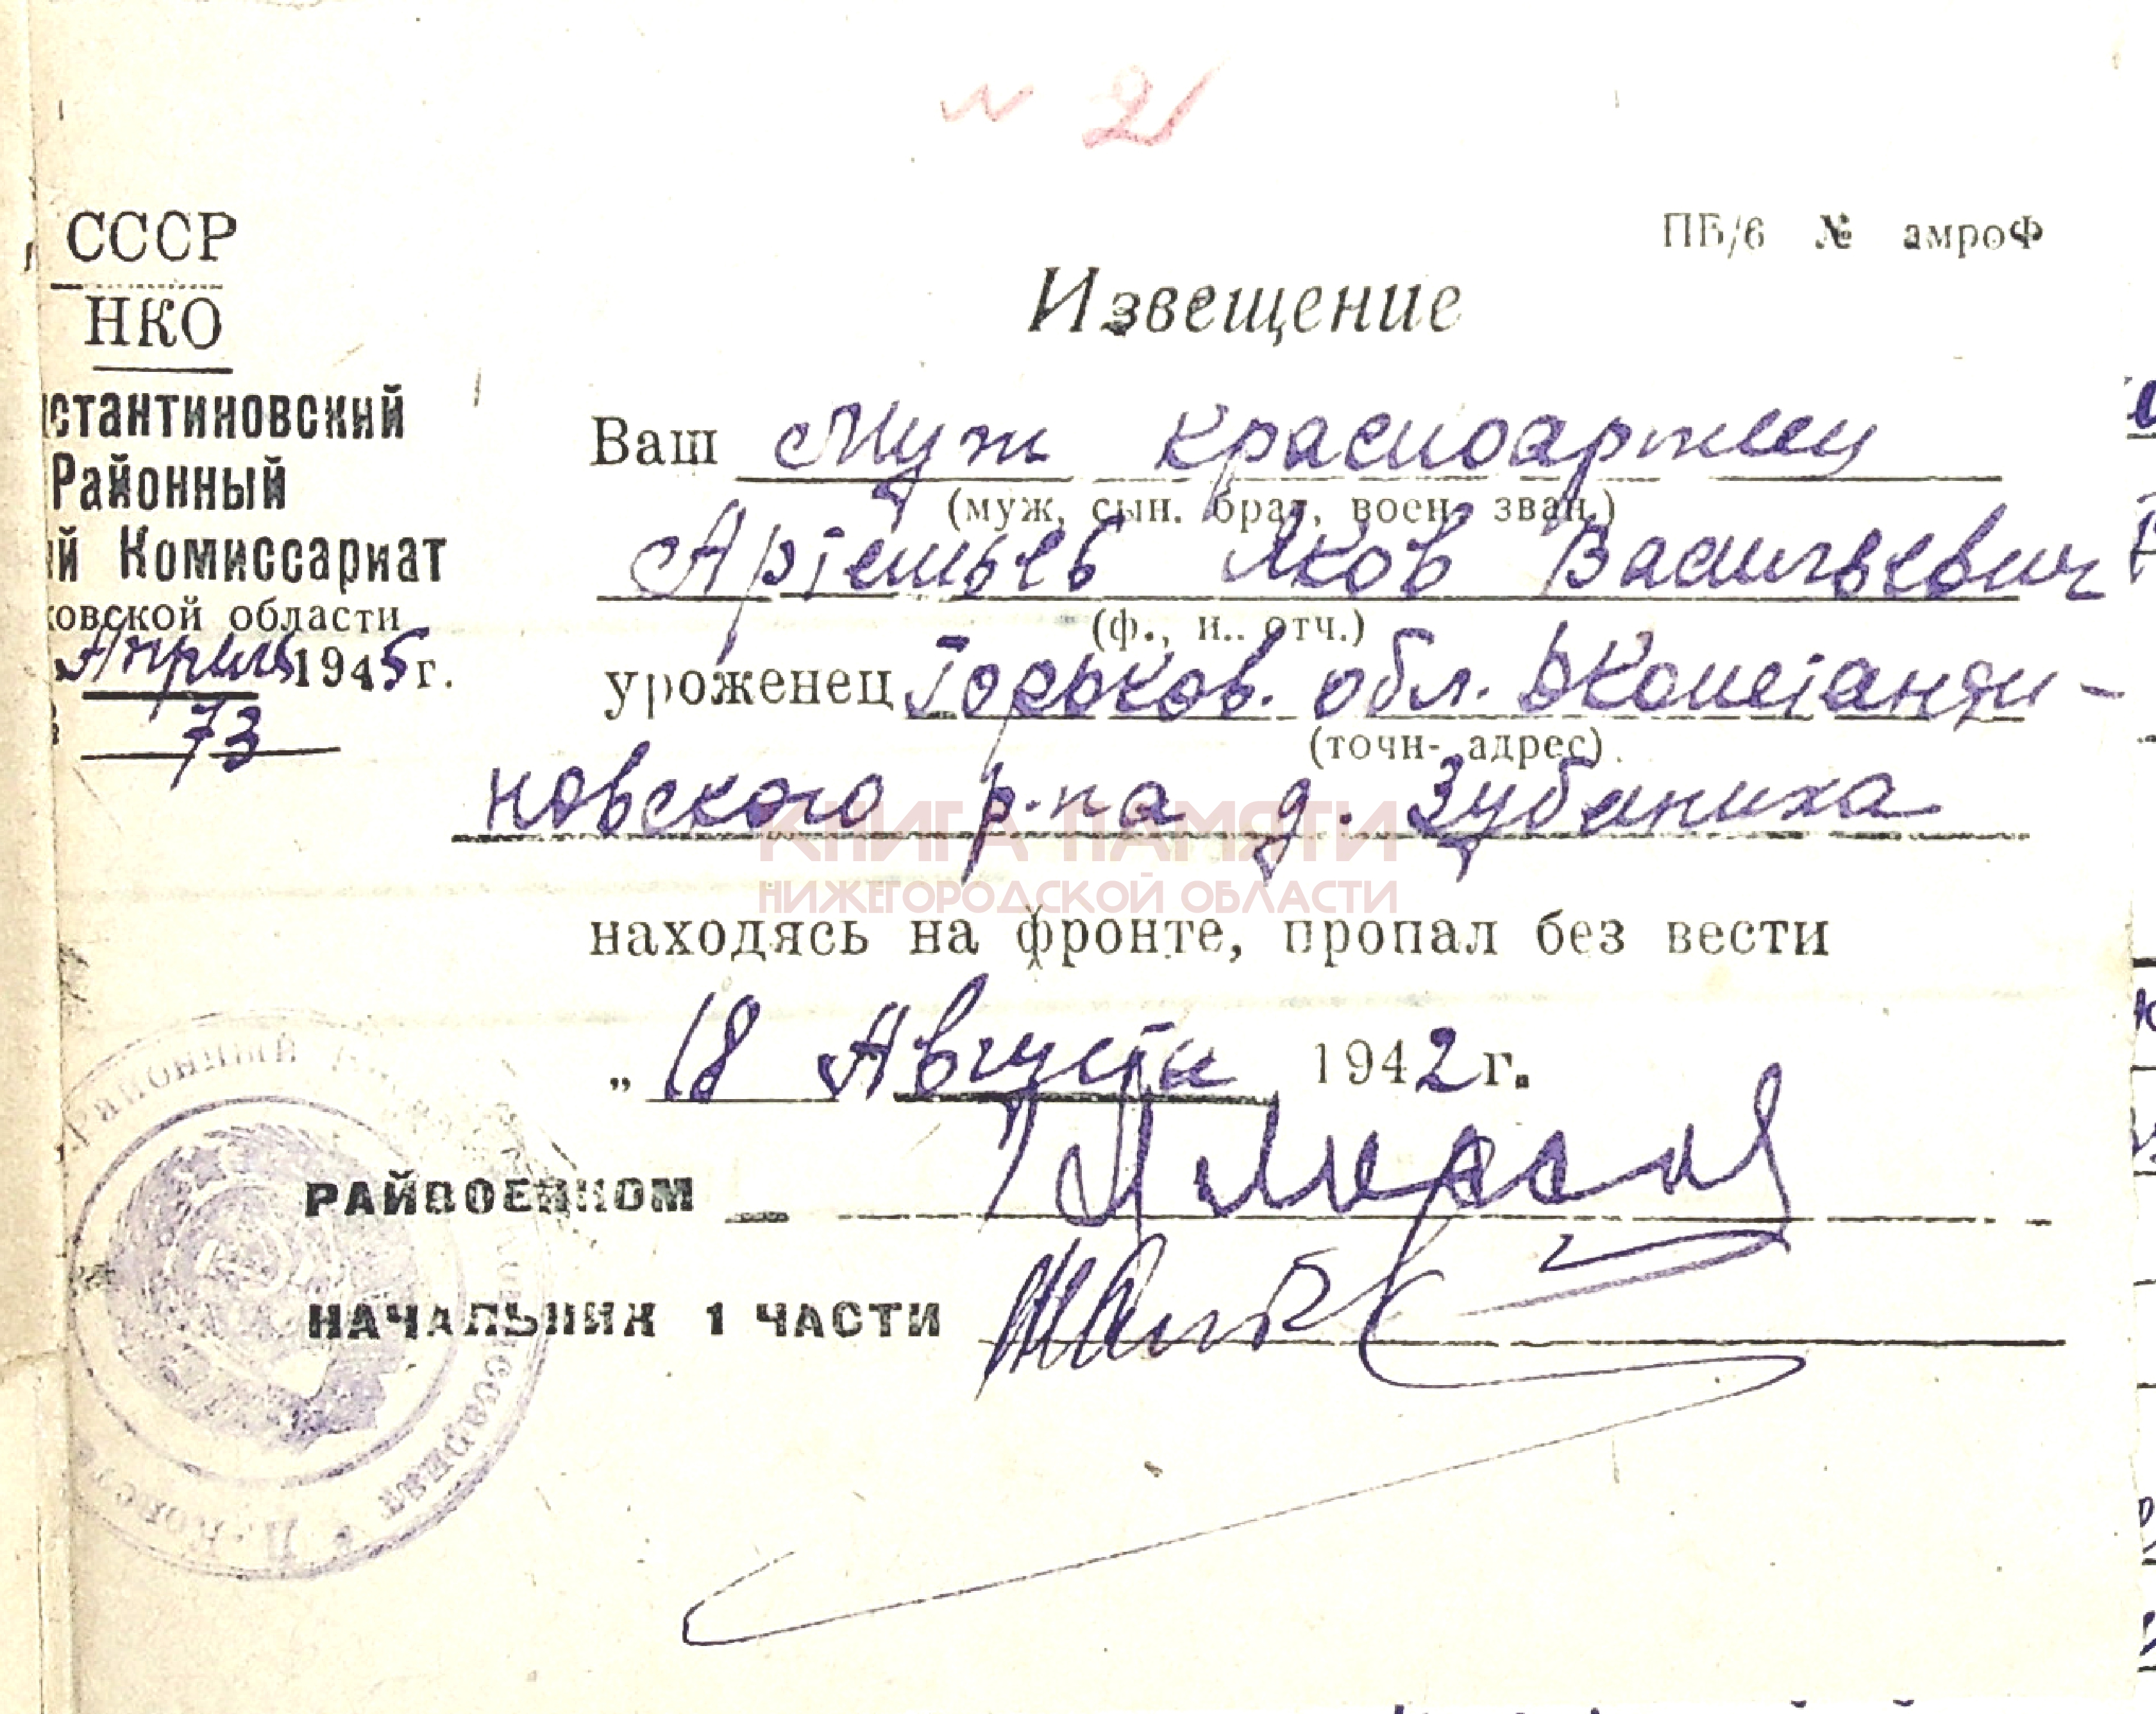 N 21
СССР
НКО
стантиновский
Районный
й Комиссариат
овской области
Апреля 1945 г.
73
ПБ/6 № амроФ
Извещение
Ваш Муж красноармеец
(муж, сын. брат, воен. зван.)
Артемьев Яков Васильевич
(ф., и.. отч.)
уроженец Горьков. обл. Дконстанти-
(точн- адрес)
новского р-на д. Зубаниха
КНИГА ПАМЯТИ
НИЖЕГОРОДСКОЙ ОБЛАСТИ
находясь на фронте, пропал без вести
„ 18 Августа 1942 г.
РАЙВОЕНКОМ
НАЧАЛЬНИК 1 ЧАСТИ